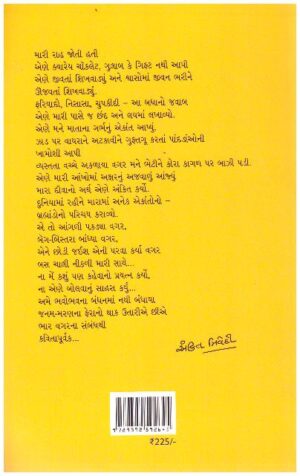 મારી રાહ જોતી હતી
એણે ક્યારેય ચૉકલેટ, ગુલાબ કે ગિફ્ટ નથી આપી
એણે જીવતાં શિખવાડ્યું અને શ્વાસોમાં જીવન ભરીને
ઊજવતાં શિખવાડ્યું.
ફરિયાદો, નિસાસા, ચુપકીદી – આ બધાનો જવાબ
એણે મારી પાસે જ છંદ અને લયમાં લખાવ્યો.
એણે મને માતાના ગર્ભનું એકાંત આપ્યું.
ઝાડ પર વાયરાને અટકાવીને ગુફ્તગૂ કરતાં પાંદડાંઓની
ખામોશી આપી
વ્યસ્તતા વચ્ચે અકળાવા વગર મને ભેટીને કોરા કાગળ પર બાઝી પડી.
એણે મારી આંખોમાં અક્ષરનું અજવાળું આંજ્યું
મારા હોવાનો અર્થ એણે અંકિત કર્યો.
દુનિયામાં રહીને મારામાં અનેક એકાંતોનો –
બ્રહ્માંડોનો પરિચય કરાવ્યો.
એ તો આંગળી પકડ્યા વગર,
બૅગ-બિસ્તરા બાંધ્યા વગર,
એને છોડી જઈશ એની પરવા કર્યા વગર
બસ ચાલી નીકળી મારી સાથે...
ના મેં કશું પણ કહેવાનો પ્રયત્ન કર્યો,
ના એણે બોલવાનું સાહસ કર્યું...
અમે ભવોભવના બંધનમાં નથી બંધાયાં
જનમ-મરણના ફેરાનો થાક ઉતારીએ છીએ
ભાર વગરના સંબંધથી
કવિતાપૂર્વક...
અંકિત ત્રિવેદી
₹225/-